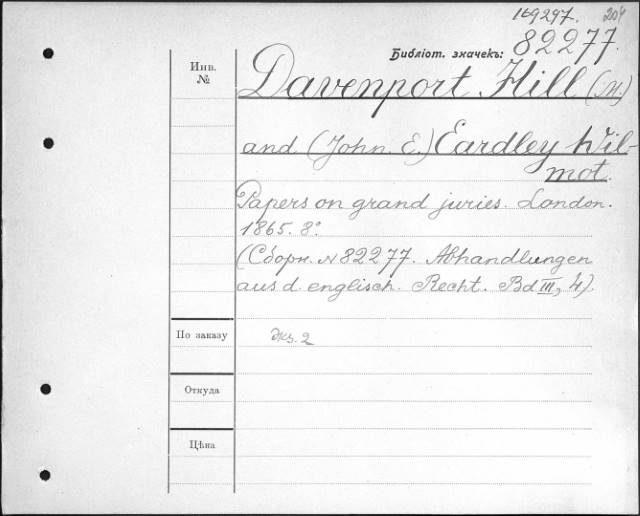 169297. 204
Библіот. значекъ: 82277.
Инв.
№
Davenport Hill (M.)
and (John E.) Eardley Wil-
mot.
Papers on grand juries. London.
1865. 8°.
(Сборн. N 82277. Abhandlungen
aus d. englisch. Recht. Bd III, 4).
По заказу
Экз. 2
Откуда
Цѣна